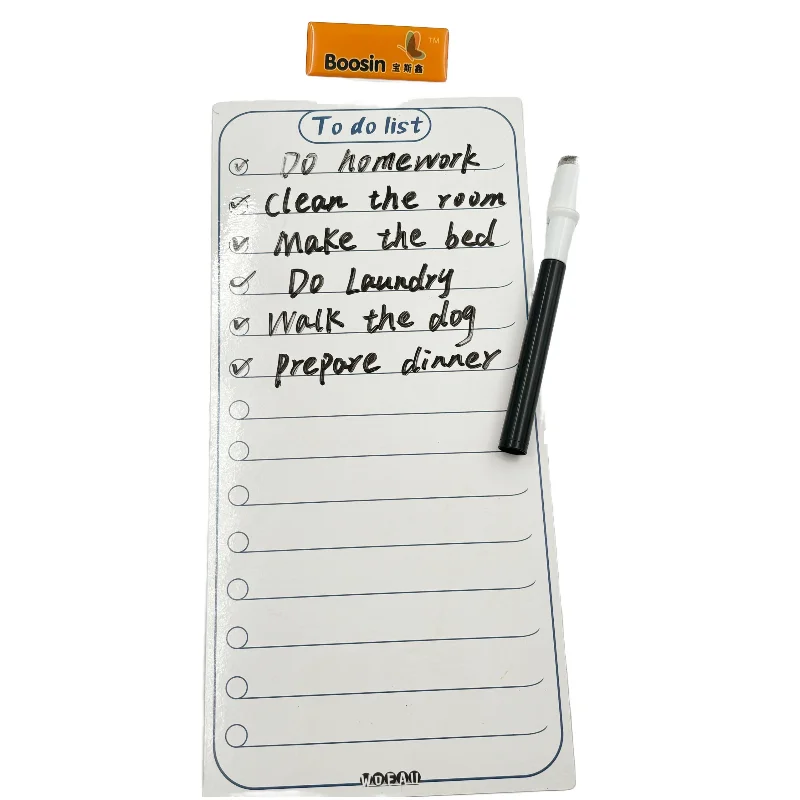 Boosin 宝斯鑫 TM
To do list
Do homework
Clean the room
Make the bed
Do Laundry
Walk the dog
prepare dinner
WOFAU